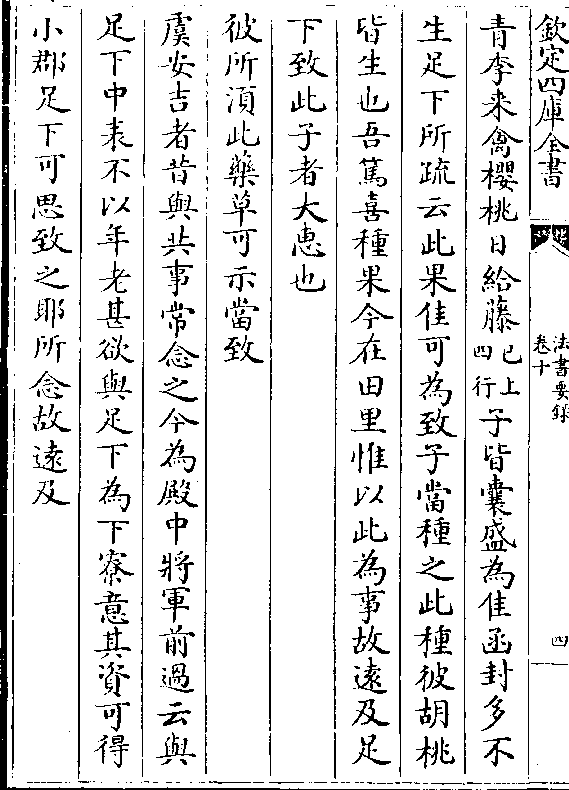 欽定四庫全書
法書要錄
卷十
四
青李来禽櫻桃日給藤已上四行子皆囊盛為佳函封多不
生足下所疏云此果佳可為致子當種之此種彼胡桃
皆生也吾篤喜種果今在田里惟以此為事故遠及足
下致此子者大惠也
彼所湏此藥草可示當致
虞安吉者昔與共事常念之今為殿中將軍前過云與
足下中表不以年老甚欲與足下為下寮意其資可得
小郡足下可思致之耶所念故遠及